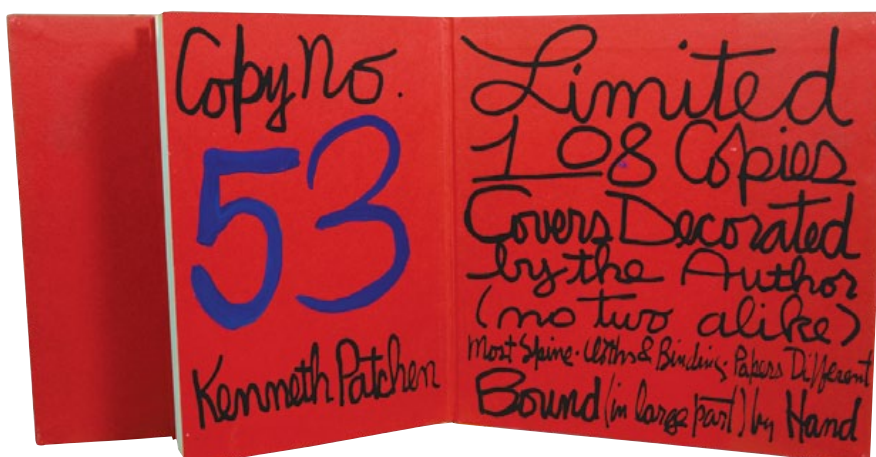 Copy No.
53
Kenneth Patchen
Limited
108 Copies
Covers Decorated
by the Author
(no two alike)
Most Spine-Cloths & Binding Papers Different
Bound (in large part) by Hand